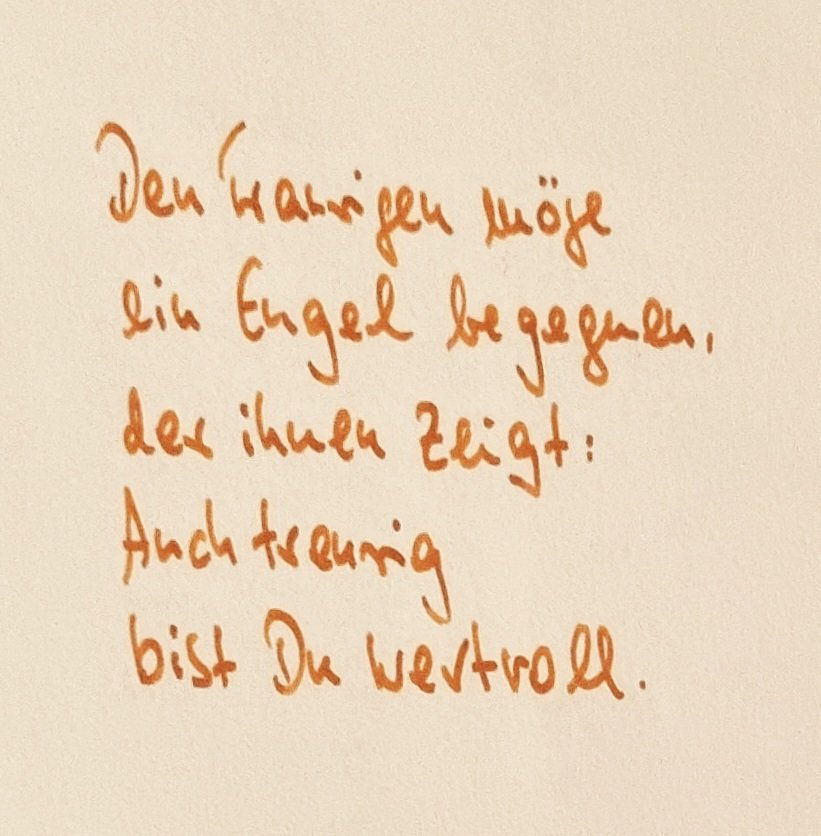 Den Traurigen möge
ein Engel begegnen,
der ihnen zeigt:
Auch traurig
bist Du wertvoll.